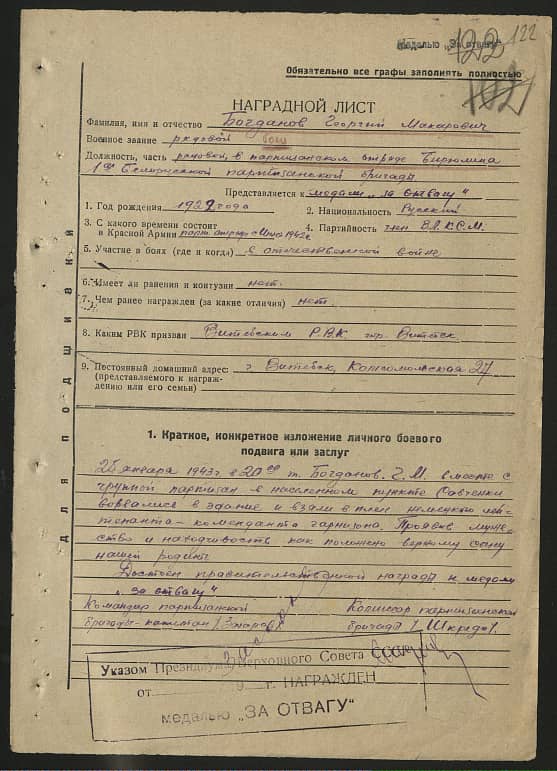 Медалью „За отвагу"
122
122
102
Обязательно все графы заполнять полностью
НАГРАДНОЙ ЛИСТ
Фамилия, имя и отчество Богданов Георгий Макарович
Военное звание рядовой боец
Должность, часть рядовой, в партизанском отряде Бирюлина
1ой Белорусской партизанской бригады
Представляется к медали „за отвагу"
1. Год рождения 1922 года
2. Национальность Русский
3. С какого времени состоит
в Красной Армии парт. отряд с 1942г
4. Партийность член ВЛКСМ.
5. Участие в боях (где и когда) в отечественной войне
6. Имеет ли ранения и контузии нет.
7. Чем ранее награжден (за какие отличия) нет.
8. Каким РВК призван Витебским Р.В.К. гор. Витебск
9. Постоянный домашний адрес: г. Витебск, Комсомольская 27
(представляемого к награж-
дению или его семьи)
Для подшивки
1. Краткое, конкретное изложение личного боевого
подвига или заслуг
января 1943г в 20 00 т. Богданов. Г. М. вместе с
группой партизан в населенном пункте Савченки
ворвались в здание и взяли в плен немецкого лей-
тенанта - коменданта гарнизона. Проявив муже-
ство и находчивость как положено верному сыну
нашей родины.
Достоен правительственной награды к медали
„за отвагу"
Командир партизанской
бригады - капитан /Захаров/
Комиссар партизанской
бригады / Шкредо/.
Указом Президиума Верховного Совета
от г. НАГРАЖДЕН
медалью „ЗА ОТВАГУ"